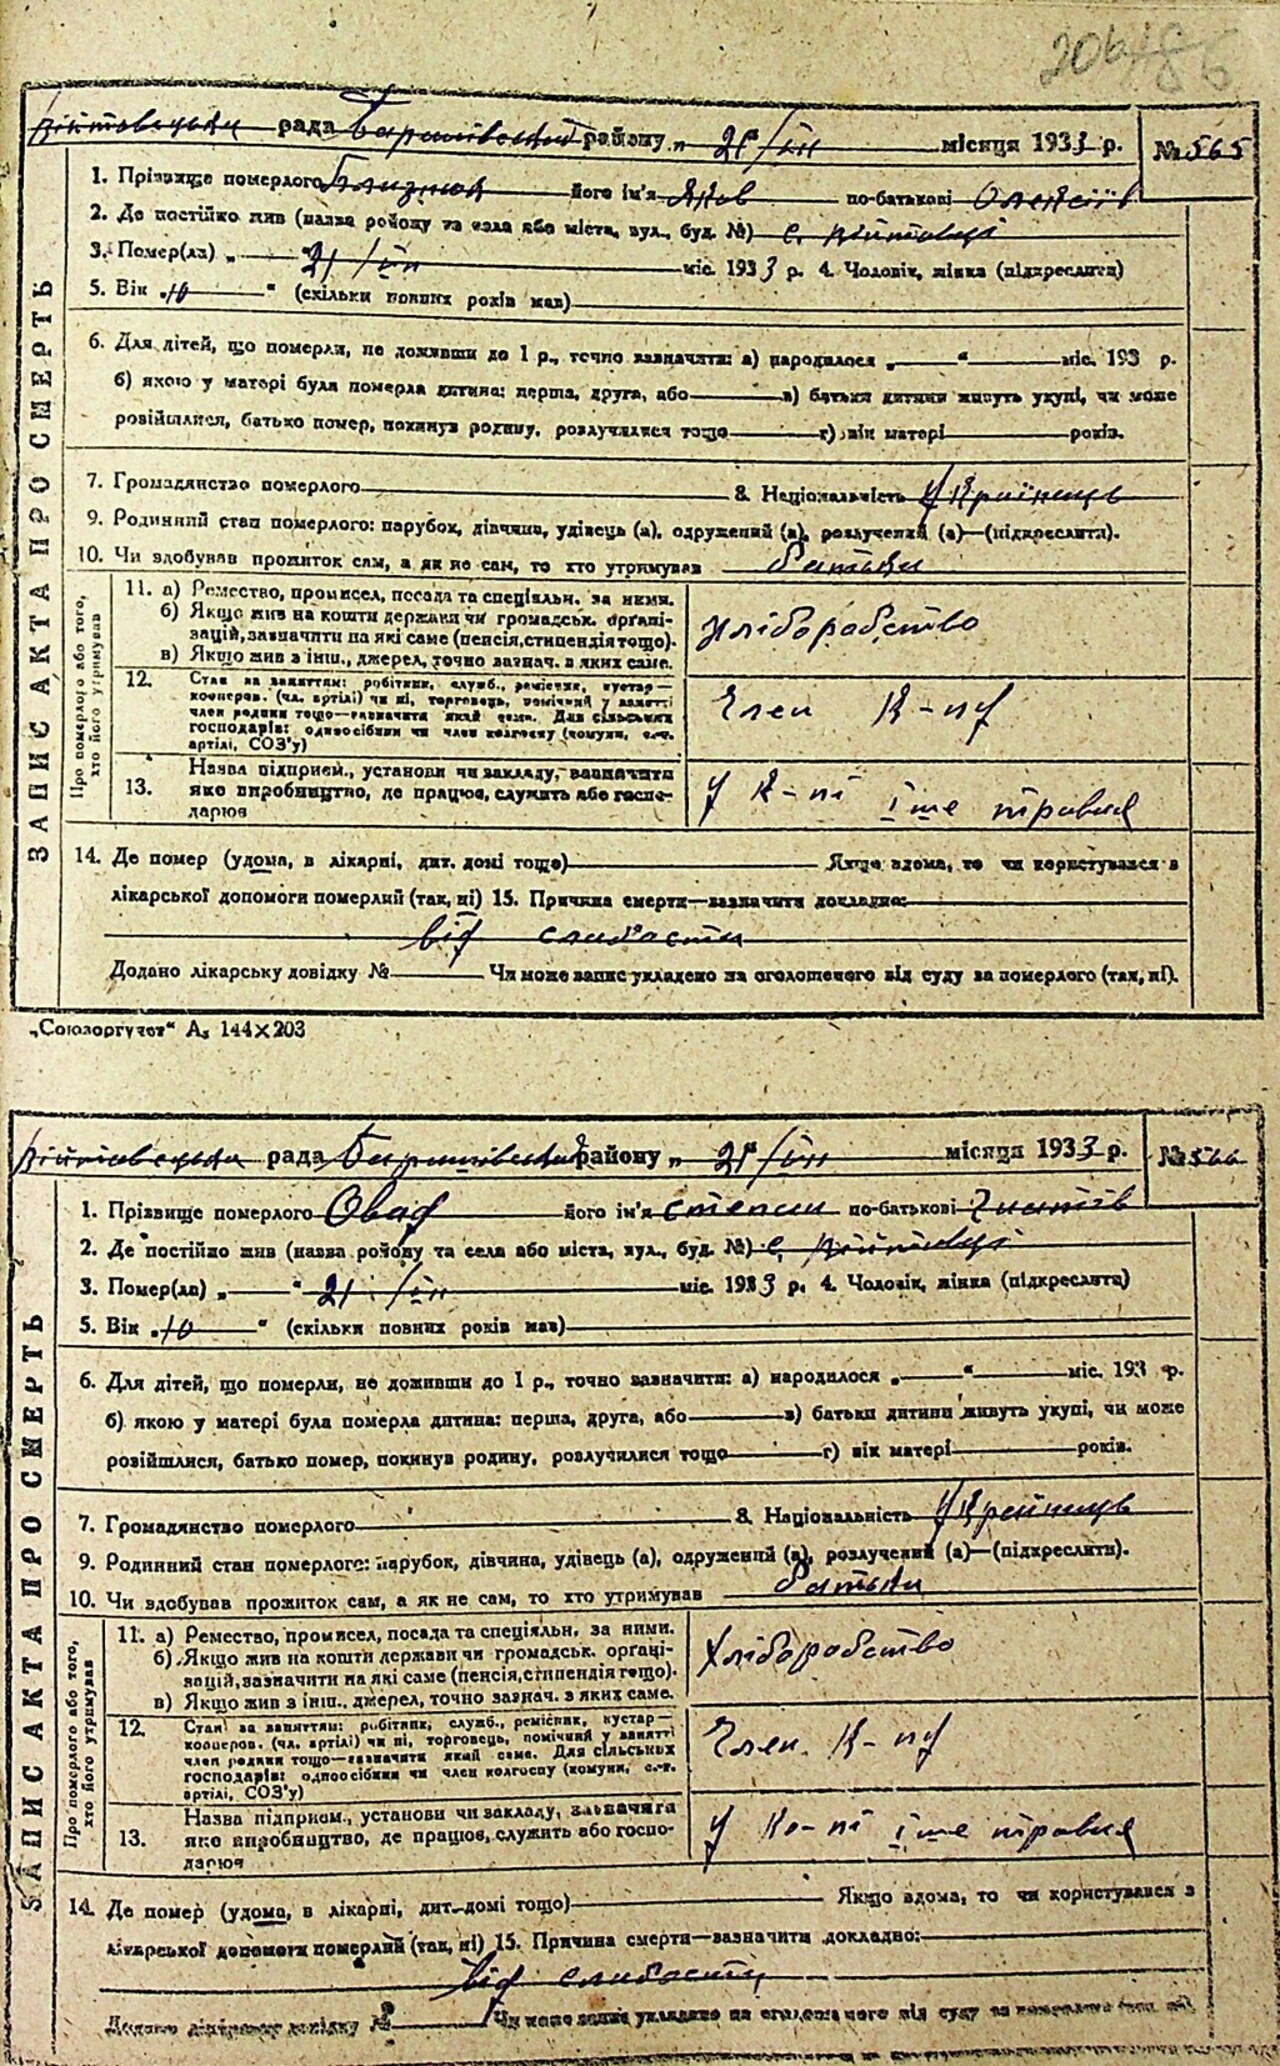 206 186
Війтовецька рада Баришівський району „ 21/VII місяця 1933 р. № 565
1. Прізвище померлого Близнюк його ім'я Яків по-батькові Олексіїв
2. Де постійно жив (назва району та села або міста, вул., буд. №) с. Війтовці
3. Помер(ла) „ " 21/VII міс. 1933 р. 4. Чоловік, жінка (підкреслити)
5. Вік „10 " (скільки повних років мав)
ЗАПИС АКТА ПРО СМЕРТЬ
6. Для дітей, що померли, не доживши до 1 р., точно зазначити: а) народилося „ " міс. 193 р.
б) якою у матері була померла дитина: перша, друга, або в) батьки дитини живуть укупі, чи може
розійшлися, батько помер, покинув родину, розлучилися тощо г) вік матері років.
7. Громадянство померлого 8. Національність Українець
9. Родинний стан померлого: парубок, дівчина, удівець (а), одружений (а), розлучений (а)—(підкреслити).
10. Чи здобував прожиток сам, а як не сам, то хто утримував батьки
Про померлого або того, хто його утримував
11. а) Ремество, промисел, посада та спеціяльн. за ними.
б) Якщо жив на кошти держави чи громадськ. органі-
зацій, зазначити на які саме (пенсія, стипендія тощо).
в) Якщо жив з інш., джерел, точно зазнач. з яких саме.
хліборобство
12. Стан за заняттям: робітник, служб., ремісник, кустар—
кооперов. (чл. артілі) чи ні, торговець, помічний у занятті
член родини тощо—зазначити який саме. Для сільських
господарів: одноосібник чи член колгоспу (комуни, с.-г.
артілі, СОЗ'у)
Член К-пу
13. Назва підприєм., установи чи закладу, зазначити
яке виробництво, де працює, служить або госпо-
дарює
у К-пі 1ше травня
14. Де помер (удома, в лікарні, дит. домі тощо) Якщо вдома, то чи користувався з
лікарської допомоги померлий (так, ні) 15. Причина смерти—зазначити докладно:
від слабости
Додано лікарську довідку № Чи може запис укладено на оголошеного від суду за померлого (так, ні).
„Союзоргучет" А₅ 144×203
Війтовецька рада Баришівський району „ 21/VII місяця 1933 р. № 566
1. Прізвище померлого Овад його ім'я Степан по-батькові Гнатів
2. Де постійно жив (назва району та села або міста, вул., буд. №) с. Війтовці
3. Помер(ла) „ " 21/VII міс. 1933 р. 4. Чоловік, жінка (підкреслити)
5. Вік „10 " (скільки повних років мав)
ЗАПИС АКТА ПРО СМЕРТЬ
6. Для дітей, що померли, не доживши до 1 р., точно зазначити: а) народилося „ " міс. 193 р.
б) якою у матері була померла дитина: перша, друга, або в) батьки дитини живуть укупі, чи може
розійшлися, батько помер, покинув родину, розлучилися тощо г) вік матері років.
7. Громадянство померлого 8. Національність Українець
9. Родинний стан померлого: парубок, дівчина, удівець (а), одружений (а), розлучений (а)—(підкреслити).
10. Чи здобував прожиток сам, а як не сам, то хто утримував батьки
Про померлого або того, хто його утримував
11. а) Ремество, промисел, посада та спеціяльн. за ними.
б) Якщо жив на кошти держави чи громадськ. органі-
зацій, зазначити на які саме (пенсія, стипендія тощо).
в) Якщо жив з інш., джерел, точно зазнач. з яких саме.
Хліборобство
12. Стан за заняттям: робітник, служб., ремісник, кустар—
кооперов. (чл. артілі) чи ні, торговець, помічний у занятті
член родини тощо—зазначити який саме. Для сільських
господарів: одноосібник чи член колгоспу (комуни, с.-г.
артілі, СОЗ'у)
Член К-пу
13. Назва підприєм., установи чи закладу, зазначити
яке виробництво, де працює, служить або госпо-
дарює
у Ко-пі 1ше травня
14. Де помер (удома, в лікарні, дит. домі тощо) Якщо вдома, то чи користувався з
лікарської допомоги померлий (так, ні) 15. Причина смерти—зазначити докладно:
від слабости
Додано лікарську довідку № Чи може запис укладено на оголошеного від суду за померлого (так, ні)